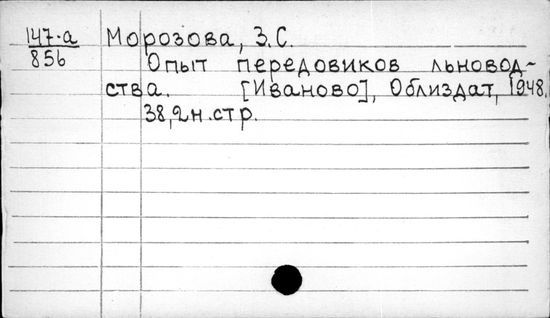 147-а
856
Морозова, З.С.
Опыт передовиков льновод-
ства. [Иваново], Облиздат, 1948.
38,2н.стр.